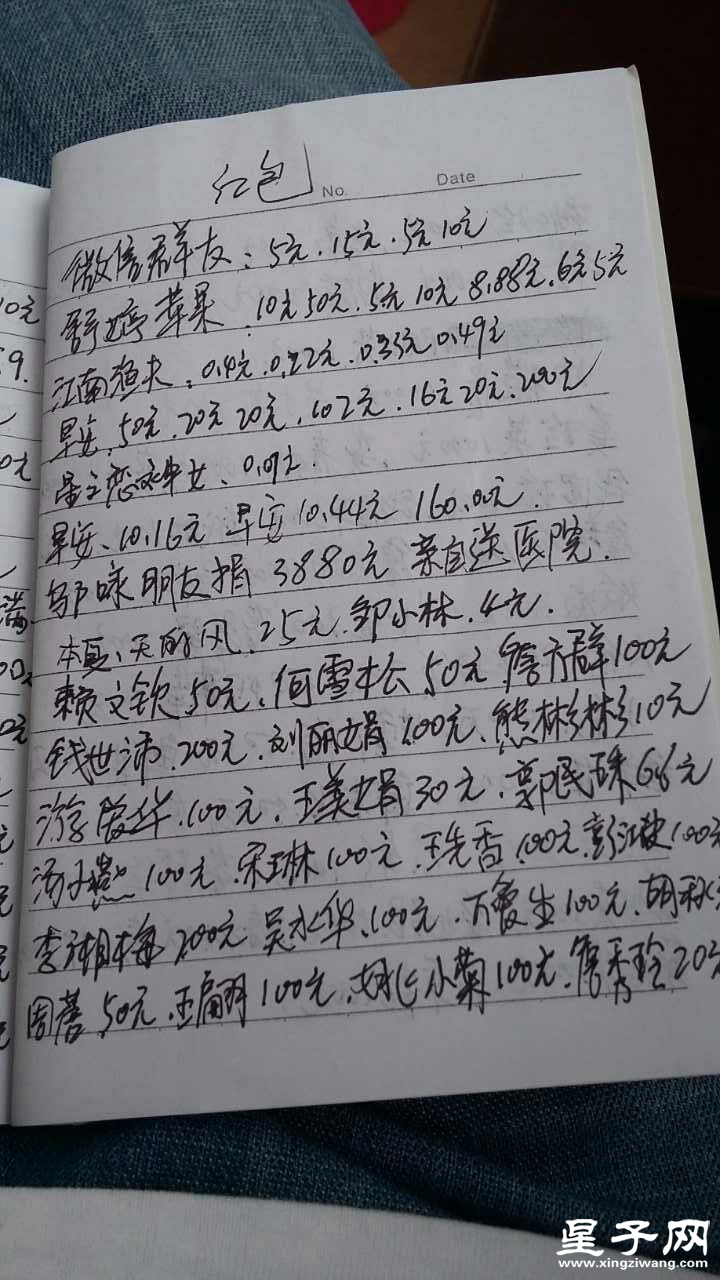 红包
No.
Date
微信群友:5元.15元.5元10元
舒婷苹果:10元50元.5元10元8.88元.6元5元
江南渔夫:0.4元.0.22元.0.35元0.49元
早安.50元.20元20元.102元.16元20元.200元
0.09元.
早安、10.16元 早安10.44元 160.00元.
邹咏朋友捐3880元 亲自送医院.
25元.邹小林.4元.
赖文钦50元.何雪松50元.詹方群100元
钱世沛.200元.刘丽娟100元.熊彬彬10元
游爱华.100元.王美娟30元.郭民珠66元
100元.宋琳100元.王先香.100元.彭江 100元
李湘梅200元 吴水华.100元.万爱生100元.胡秋
周蓓50元.王丽100元.小菊100元.詹秀玲20元
10元
9.
0元
满
00元
0元
元
星子网
www.xingziwang.com